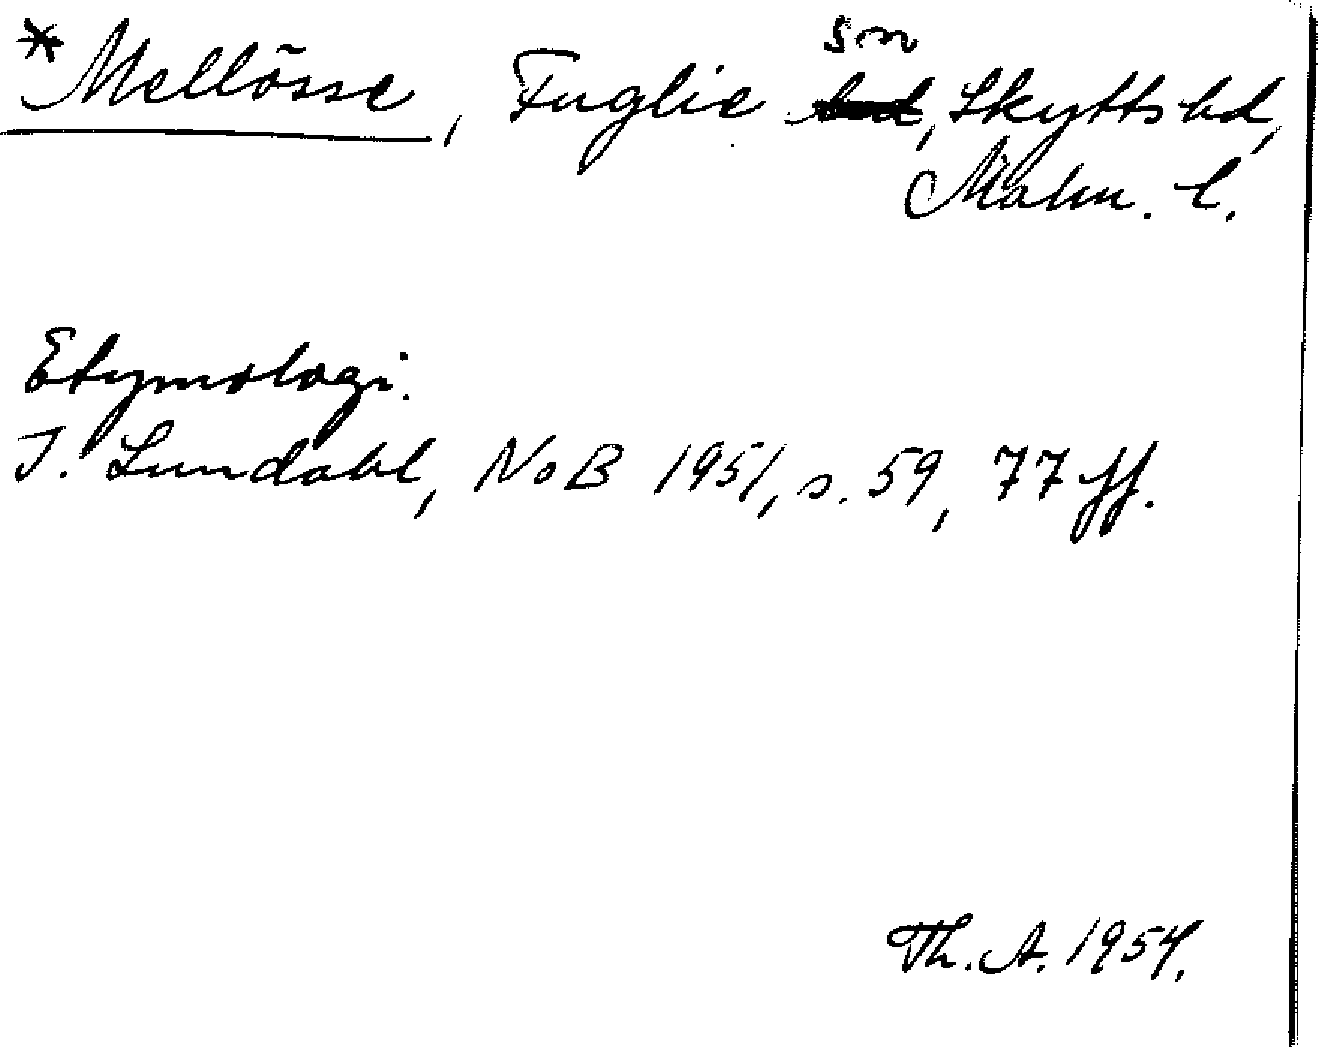 *Mellösse, Fuglie sn, Skytts hd,
Malm. l.
Etymologi.
I. Lundahl, NoB 1951, s. 59, 77 ff.
Th. A. 1954.